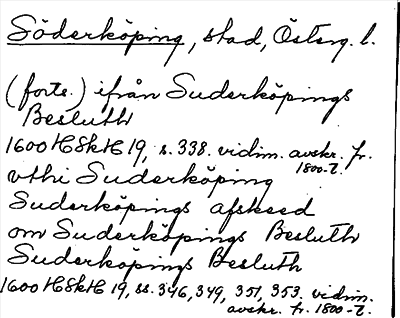 Söderköping, stad, Österg. l.
(forts.) ifrån Suderköpings
Besluth
1600 HSkH 19, s. 338. vidim. avskr. fr.
1800-t.
vthi Suderköping
Suderköpings afskeed
om Suderköpings Besluth
Suderköpings Besluth
1600 HSkH 19, ss. 346, 349, 351, 353. vidim.
avskr. fr. 1800-t.